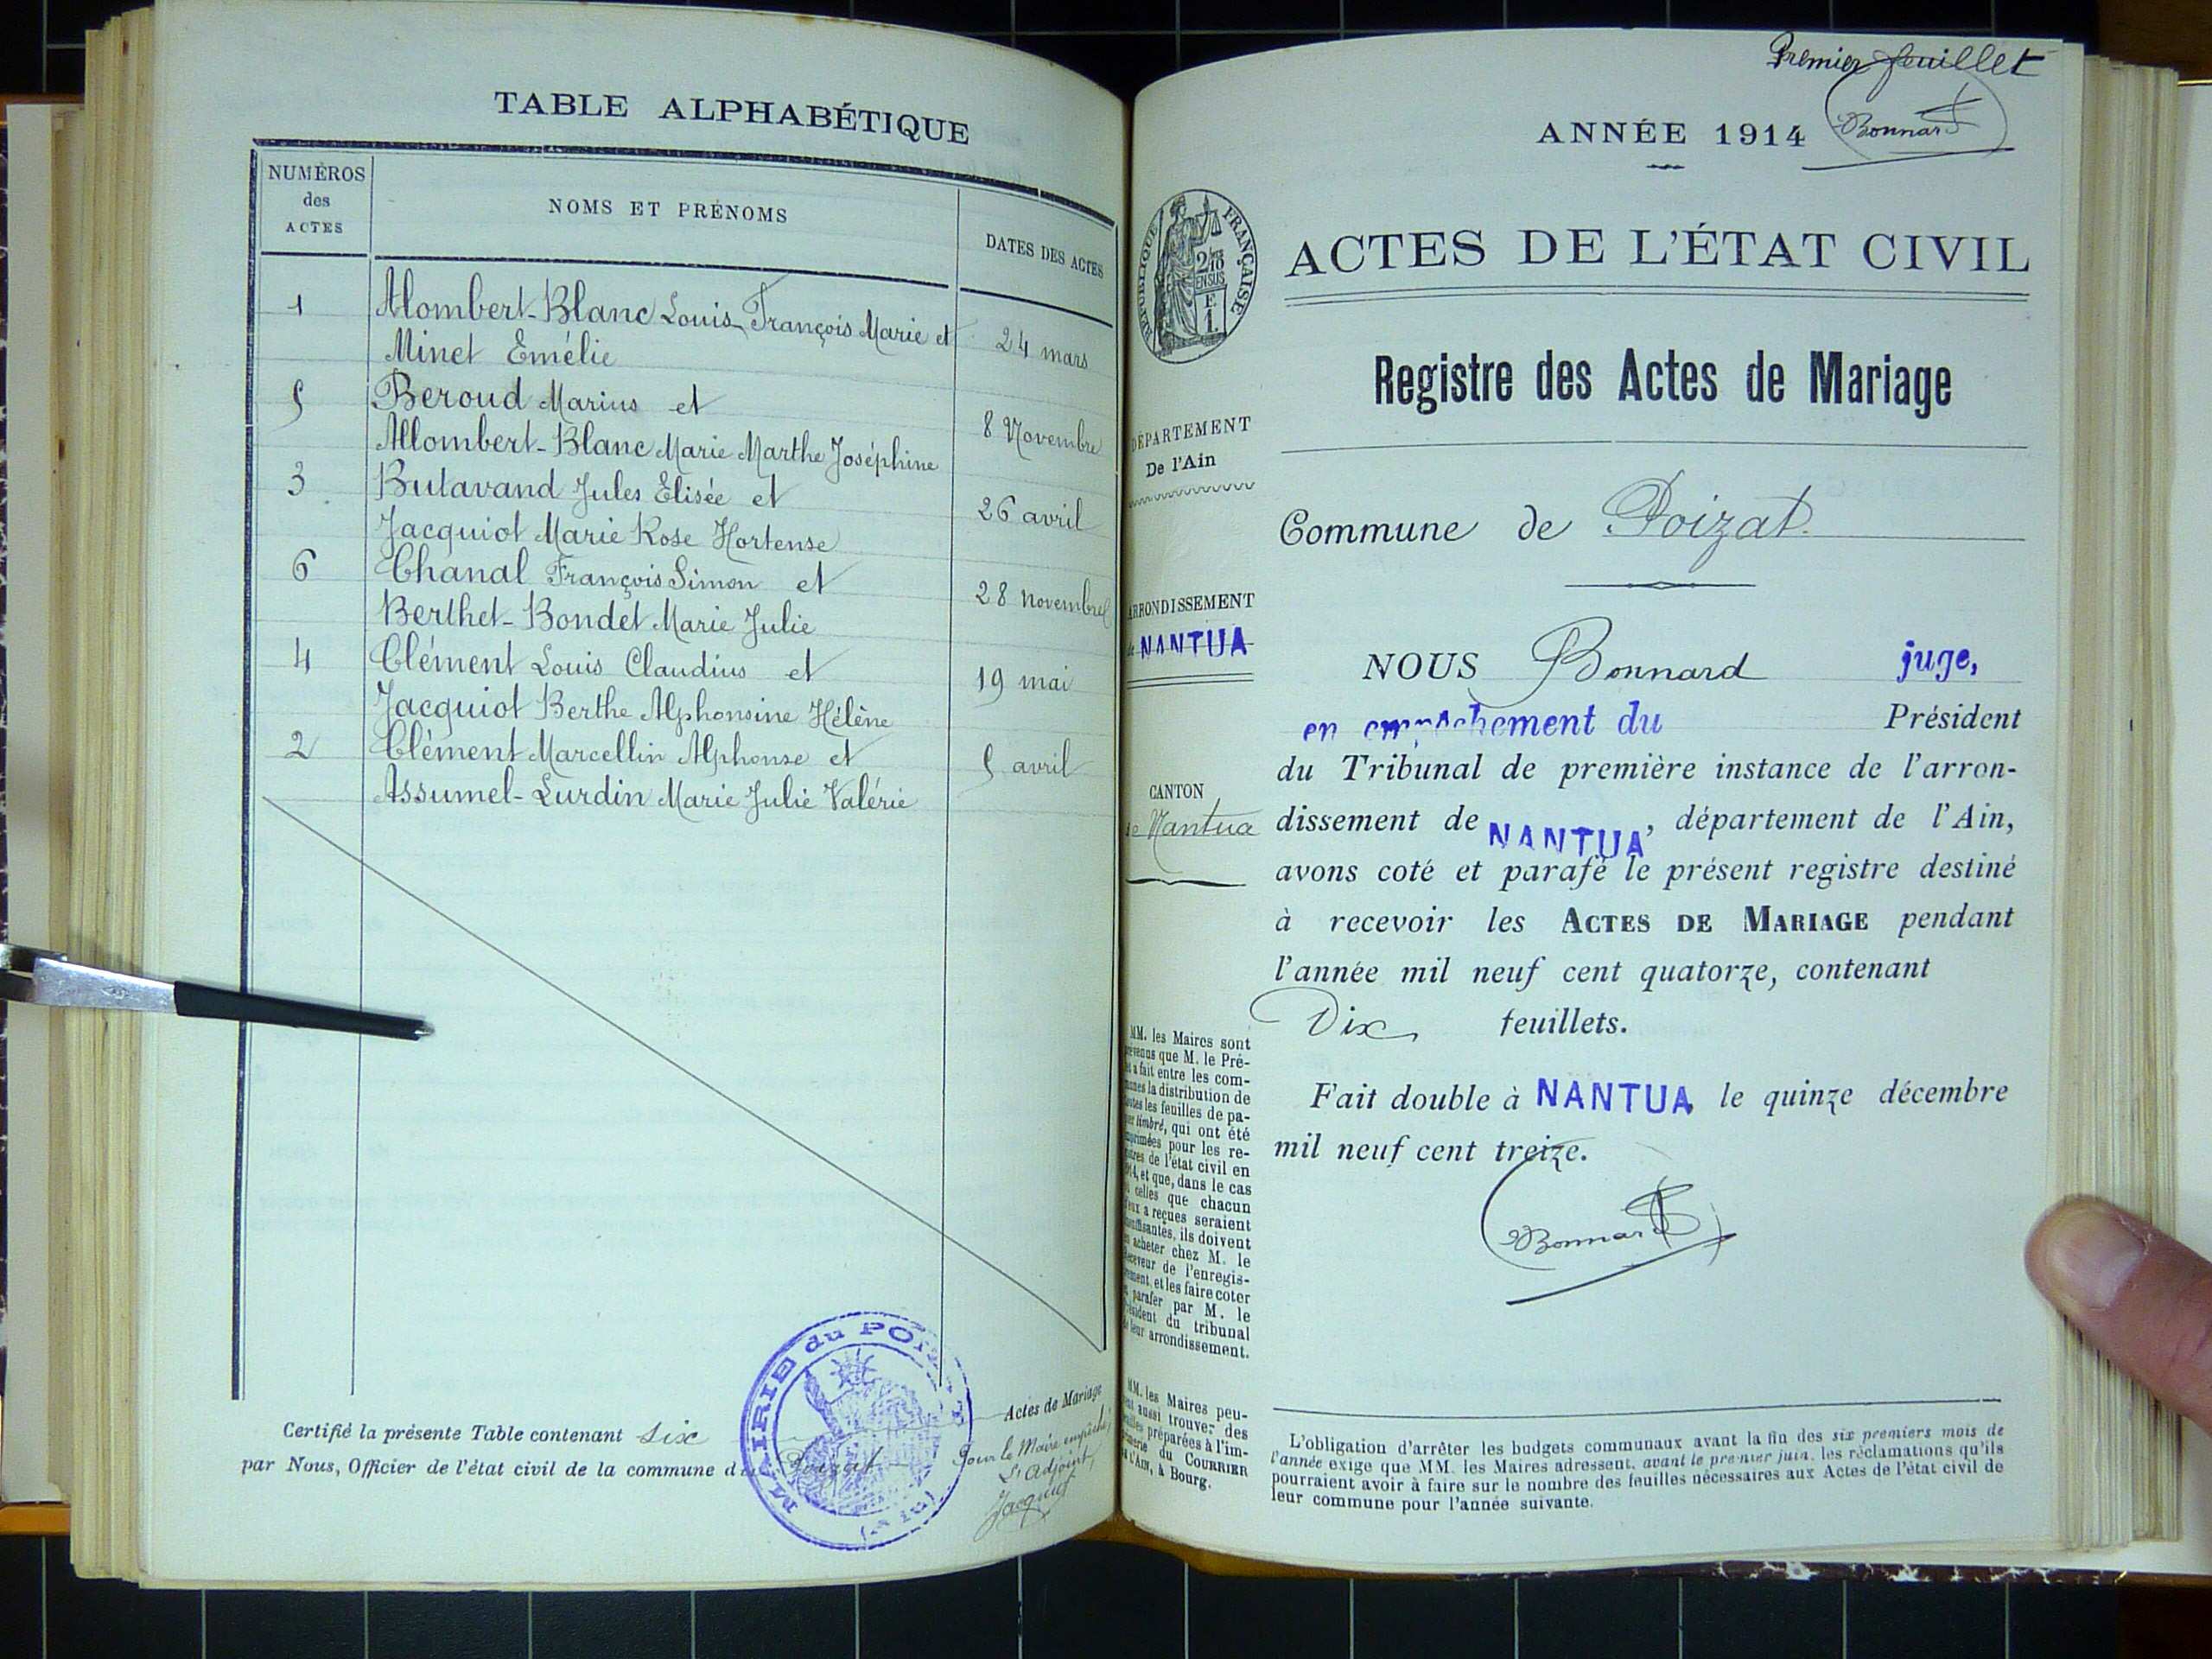 TABLE ALPHABÉTIQUE
NUMÉROS
des
ACTES
NOMS ET PRÉNOMS
DATES DES ACTES
1
Alombert-Blanc Louis François Marie et
24 mars
Minet Emélie
5
Beroud Marius et
8 Novembre
Allombert-Blanc Marie Marthe Joséphine
3
Butavand Jules Elisée et
26 avril
Jacquiot Marie Rose Hortense
6
Chanal François Simon et
28 novembre
Berthet-Bondet Marie Julie
4
Clément Louis Claudius et
19 mai
Jacquiot Berthe Alphonsine Hélène
2
Clément Marcellin Alphonse et
5 avril
Assumel-Lurdin Marie Julie Valérie
Certifié la présente Table contenant six Actes de Mariage
par Nous, Officier de l'état civil de la commune du Poizat
Pour le Maire empêché,
L'adjoint,
Jacquiot
MAIRIE du POIZAT
(Ain)
Premier feuillet
Bonnard
ANNÉE 1914
RÉPUBLIQUE FRANÇAISE
2/10
EN SUS
F.
1.
ACTES DE L'ÉTAT CIVIL
Registre des Actes de Mariage
DÉPARTEMENT
De l'Ain
Commune de Poizat.
ARRONDISSEMENT
de NANTUA
CANTON
de Nantua
NOUS Bonnard juge,
en empêchement du Président
du Tribunal de première instance de l'arron-
dissement de NANTUA, département de l'Ain,
avons coté et parafé le présent registre destiné
à recevoir les ACTES DE MARIAGE pendant
l'année mil neuf cent quatorze, contenant
Dix feuillets.
Fait double à NANTUA le quinze décembre
mil neuf cent treize.
Bonnard
MM. les Maires sont
prévenus que M. le Pré-
fet a fait entre les com-
munes la distribution de
toutes les feuilles de pa-
pier timbré, qui ont été
imprimées pour les re-
gistres de l'état civil en
1914, et que, dans le cas
où celles que chacun
d'eux a reçues seraient
insuffisantes, ils doivent
en acheter chez M. le
Receveur de l'enregis-
trement, et les faire coter
et parafer par M. le
Président du tribunal
de leur arrondissement.
MM. les Maires peu-
vent aussi trouver des
feuilles préparées à l'im-
primerie du COURRIER
de l'Ain, à Bourg.
L'obligation d'arrêter les budgets communaux avant la fin des six premiers mois de
l'année exige que MM. les Maires adressent, avant le premier juin, les réclamations qu'ils
pourraient avoir à faire sur le nombre des feuilles nécessaires aux Actes de l'état civil de
leur commune pour l'année suivante.